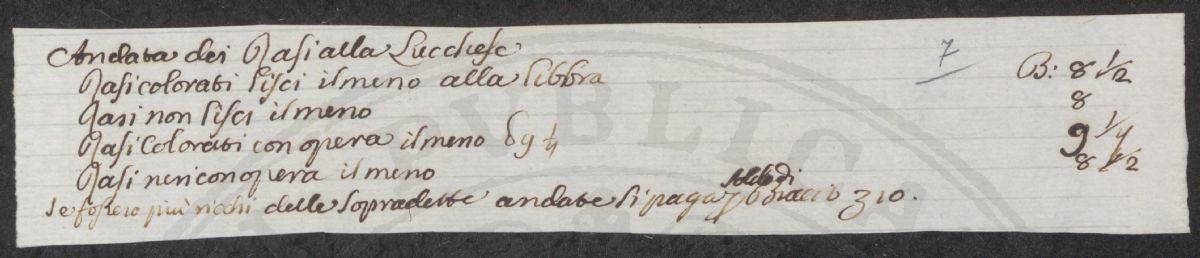 Andata dei Rasi alla Lucchese
7
Rasi colorati lisci il meno alla libbra B: 8 1/2
Rasi non lisci il meno 8
Rasi Colorati con opera il meno 9 1/4 9 1/4
Rasi neri con opera il meno 8 1/2
se fossero più ricchi delle sopradette andate si paga soldo di braccio 310.
PUBLICA